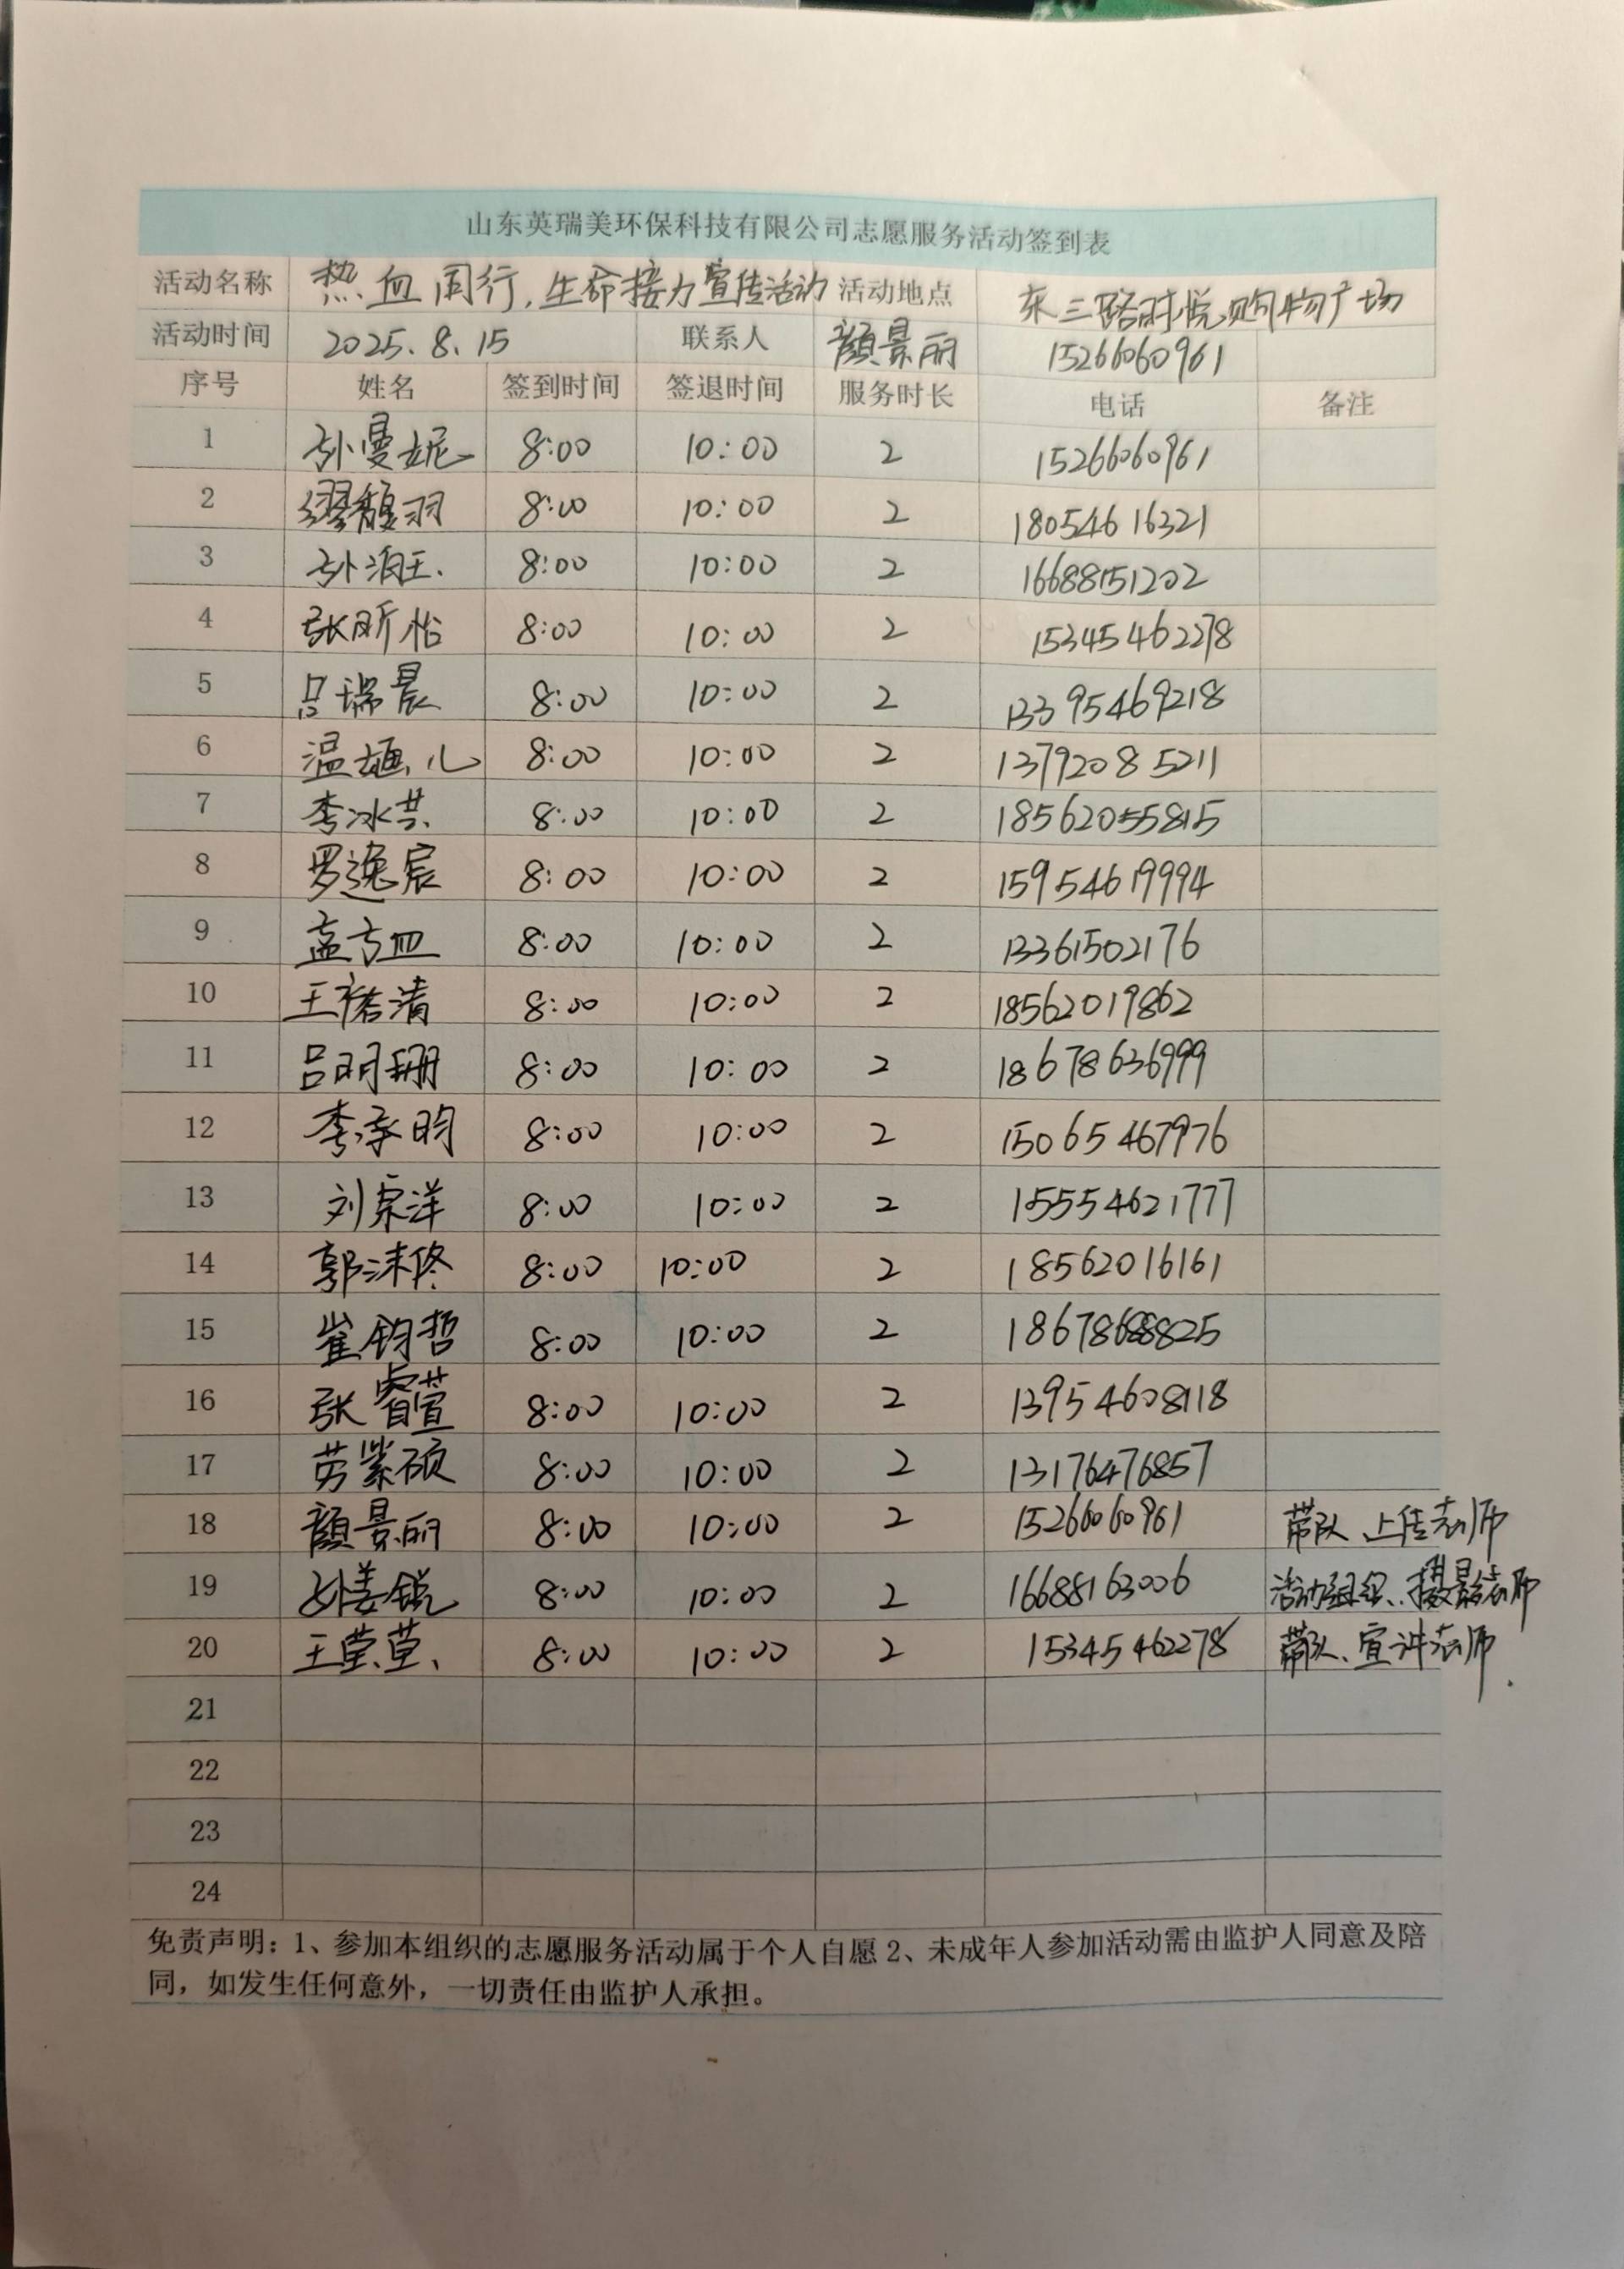 山东英瑞美环保科技有限公司志愿服务活动签到表
活动名称 热血同行,生命接力宣传活动 活动地点 东三路时悦购物广场
活动时间 2025.8.15 联系人 颜景丽 15266060961
序号 姓名 签到时间 签退时间 服务时长 电话 备注
1 孙曼妮 8:00 10:00 2 15266060961
2 缪馥羽 8:00 10:00 2 18054616321
3 孙 8:00 10:00 2 16688151202
4 张昕怡 8:00 10:00 2 15345462278
5 吕瑞晨 8:00 10:00 2 13395469218
6 温婳儿 8:00 10:00 2 13792085211
7 李冰芸 8:00 10:00 2 18562055815
8 罗逸宸 8:00 10:00 2 15954619994
9 8:00 10:00 2 13361502176
10 王偌清 8:00 10:00 2 18562019862
11 吕玥珊 8:00 10:00 2 18678636999
12 李承昀 8:00 10:00 2 15065467976
13 刘宗洋 8:00 10:00 2 15554621777
14 郭沫佟 8:00 10:00 2 18562016161
15 崔钧哲 8:00 10:00 2 18678688825
16 张睿萱 8:00 10:00 2 13954608118
17 劳紫硕 8:00 10:00 2 13176476857
18 颜景丽 8:00 10:00 2 15266060961 带队、上传老师
19 孙姜锐 8:00 10:00 2 16688163006 活动组织、摄影老师
20 王莹莹 8:00 10:00 2 15345462278 带队、宣讲老师
21
22
23
24
免责声明：1、参加本组织的志愿服务活动属于个人自愿 2、未成年人参加活动需由监护人同意及陪
同，如发生任何意外，一切责任由监护人承担。